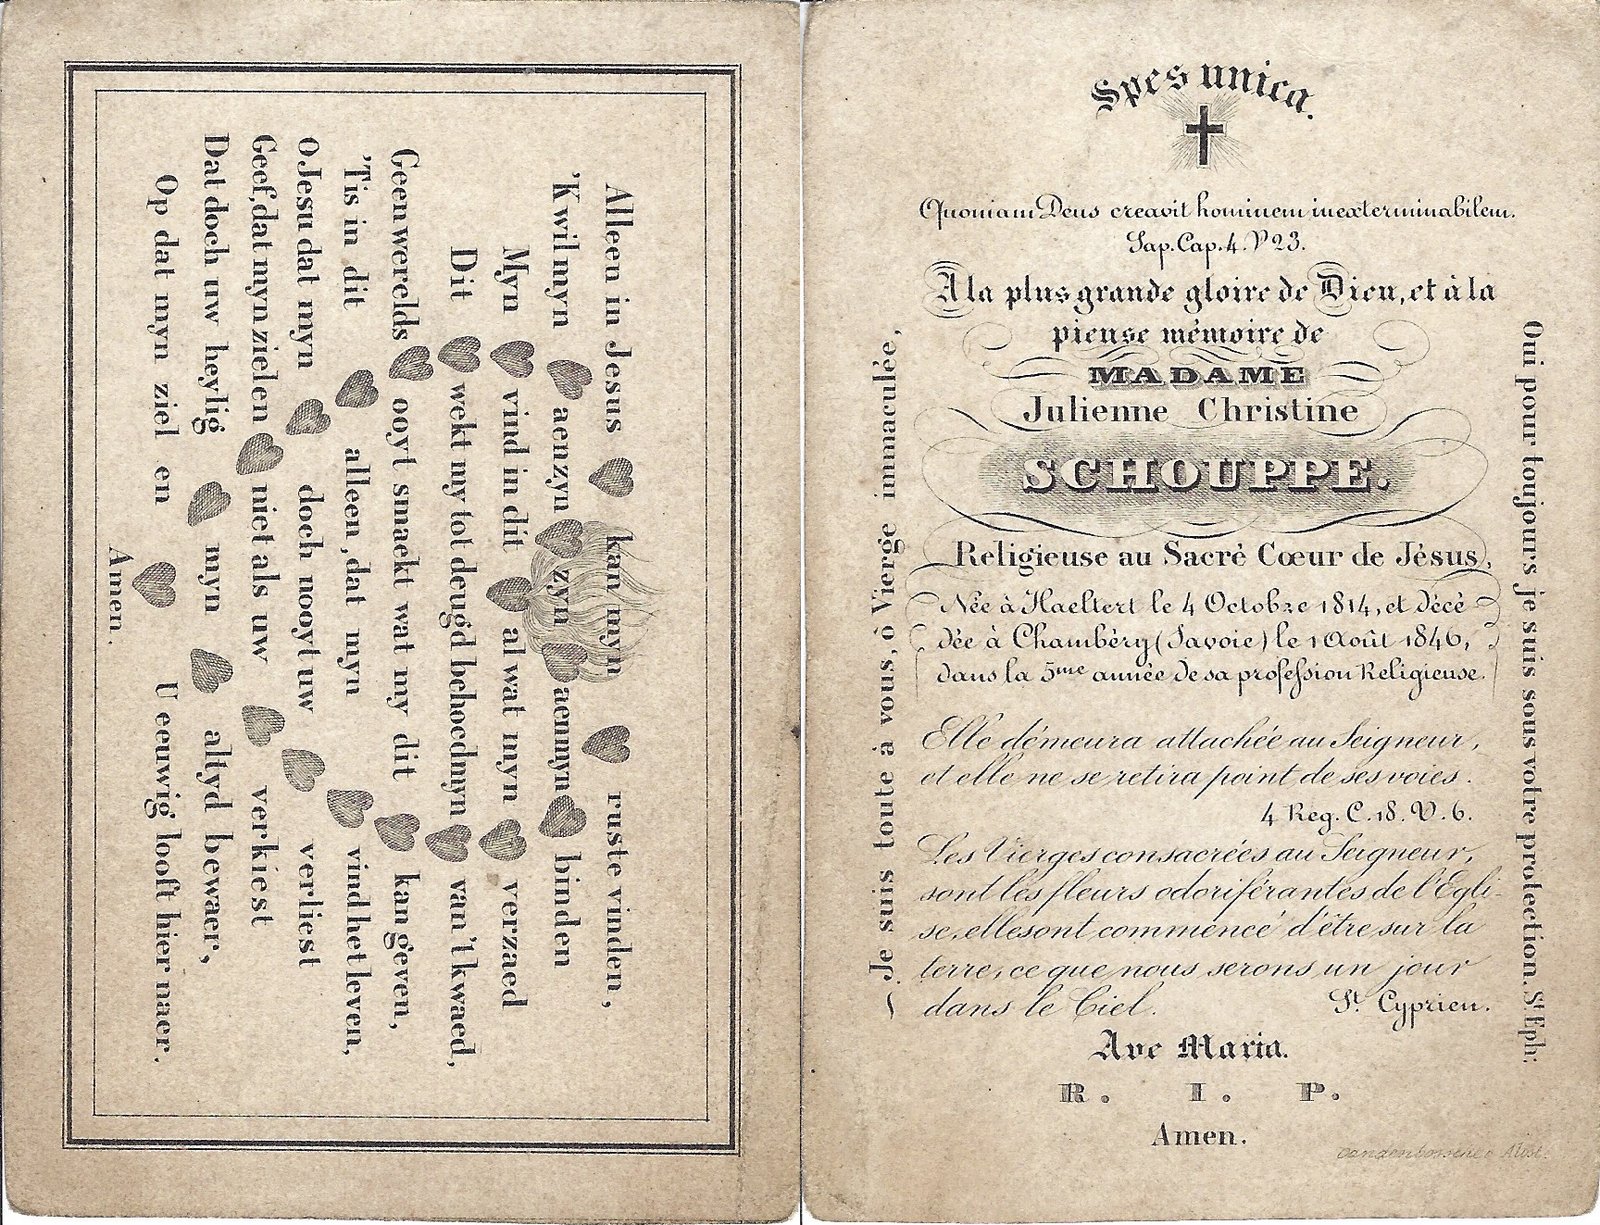 Alleen in Jesus kan myn ruste vinden,
'K wil myn aenzyn zyn aenmyn binden
Myn vind in dit al wat myn verzaed
Dit wekt my tot deugd behoedmyn van't kwaed,
Geen werelds ooyt smaekt wat my dit kan geven,
'Tis in dit alleen, dat myn vind het leven,
O Jesu dat myn doch nooyt uw verliest
Geef, dat myn zielen niet als uw verkiest
Dat doch uw heylig myn altyd bewaer,
Op dat myn ziel en U eeuwig looft hier naer.
Amen.
Spes unica.
Quoniam Deus creavit hominem inexterminabilem.
Sap. Cap. 4. V 23.
A la plus grande gloire de Dieu, et à la
pieuse mémoire de
MADAME
Julienne Christine
SCHOUPPE.
Religieuse au Sacré Cœur de Jésus,
Née à Haeltert le 4 Octobre 1814, et décé
dée à Chambéry (Savoie) le 1 Août 1846,
dans la 5me année de sa profession Religieuse.
Elle démeura attachée au Seigneur,
et elle ne se retira point de ses voies.
4 Reg. C. 18. V. 6.
Les Vierges consacrées au Seigneur,
sont les fleurs odoriférantes de l'Egli-
se, elles ont commencé d'être sur la
terre, ce que nous serons un jour
dans le Ciel. St. Cyprien.
Ave Maria.
R. I. P.
Amen.
Je suis toute à vous, ô Vierge immaculée,
Oui pour toujours je suis sous votre protection. St Eph:
Vandenbossche Alost.